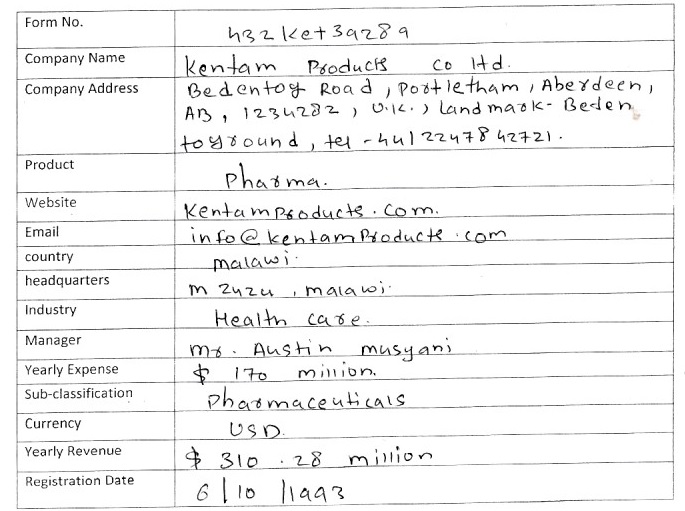 Form No. h32ket39289
Company Name Kentam Products co ltd.
Company Address Bedentoy Road, Portletham, Aberdeen,
AB, 1234282, U.K., landmark- Beden
toyround, tel -441224784 2721.
Product Pharma.
Website KentamProducts.com.
Email info@kentamProducts.com
country malawi.
headquarters mzuzu, malawi.
Industry Health care.
Manager mr. Austin musyani
Yearly Expense $ 170 million.
Sub-classification Pharmaceuticals
Currency USD.
Yearly Revenue $ 310.28 million
Registration Date 6/10/1993